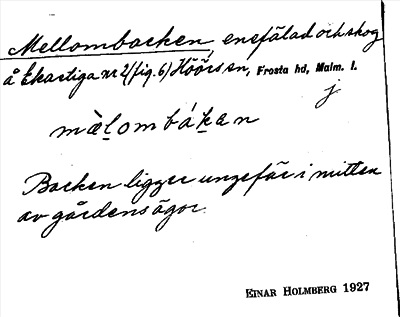 Mellombacken, enefälad och skog
å Ekastiga nr 2 (fig. 6) Höörs sn, Frosta hd, Malm. l.
j
Backen ligger ungefär i mitten
av gårdens ägor.
EINAR HOLMBERG 1927